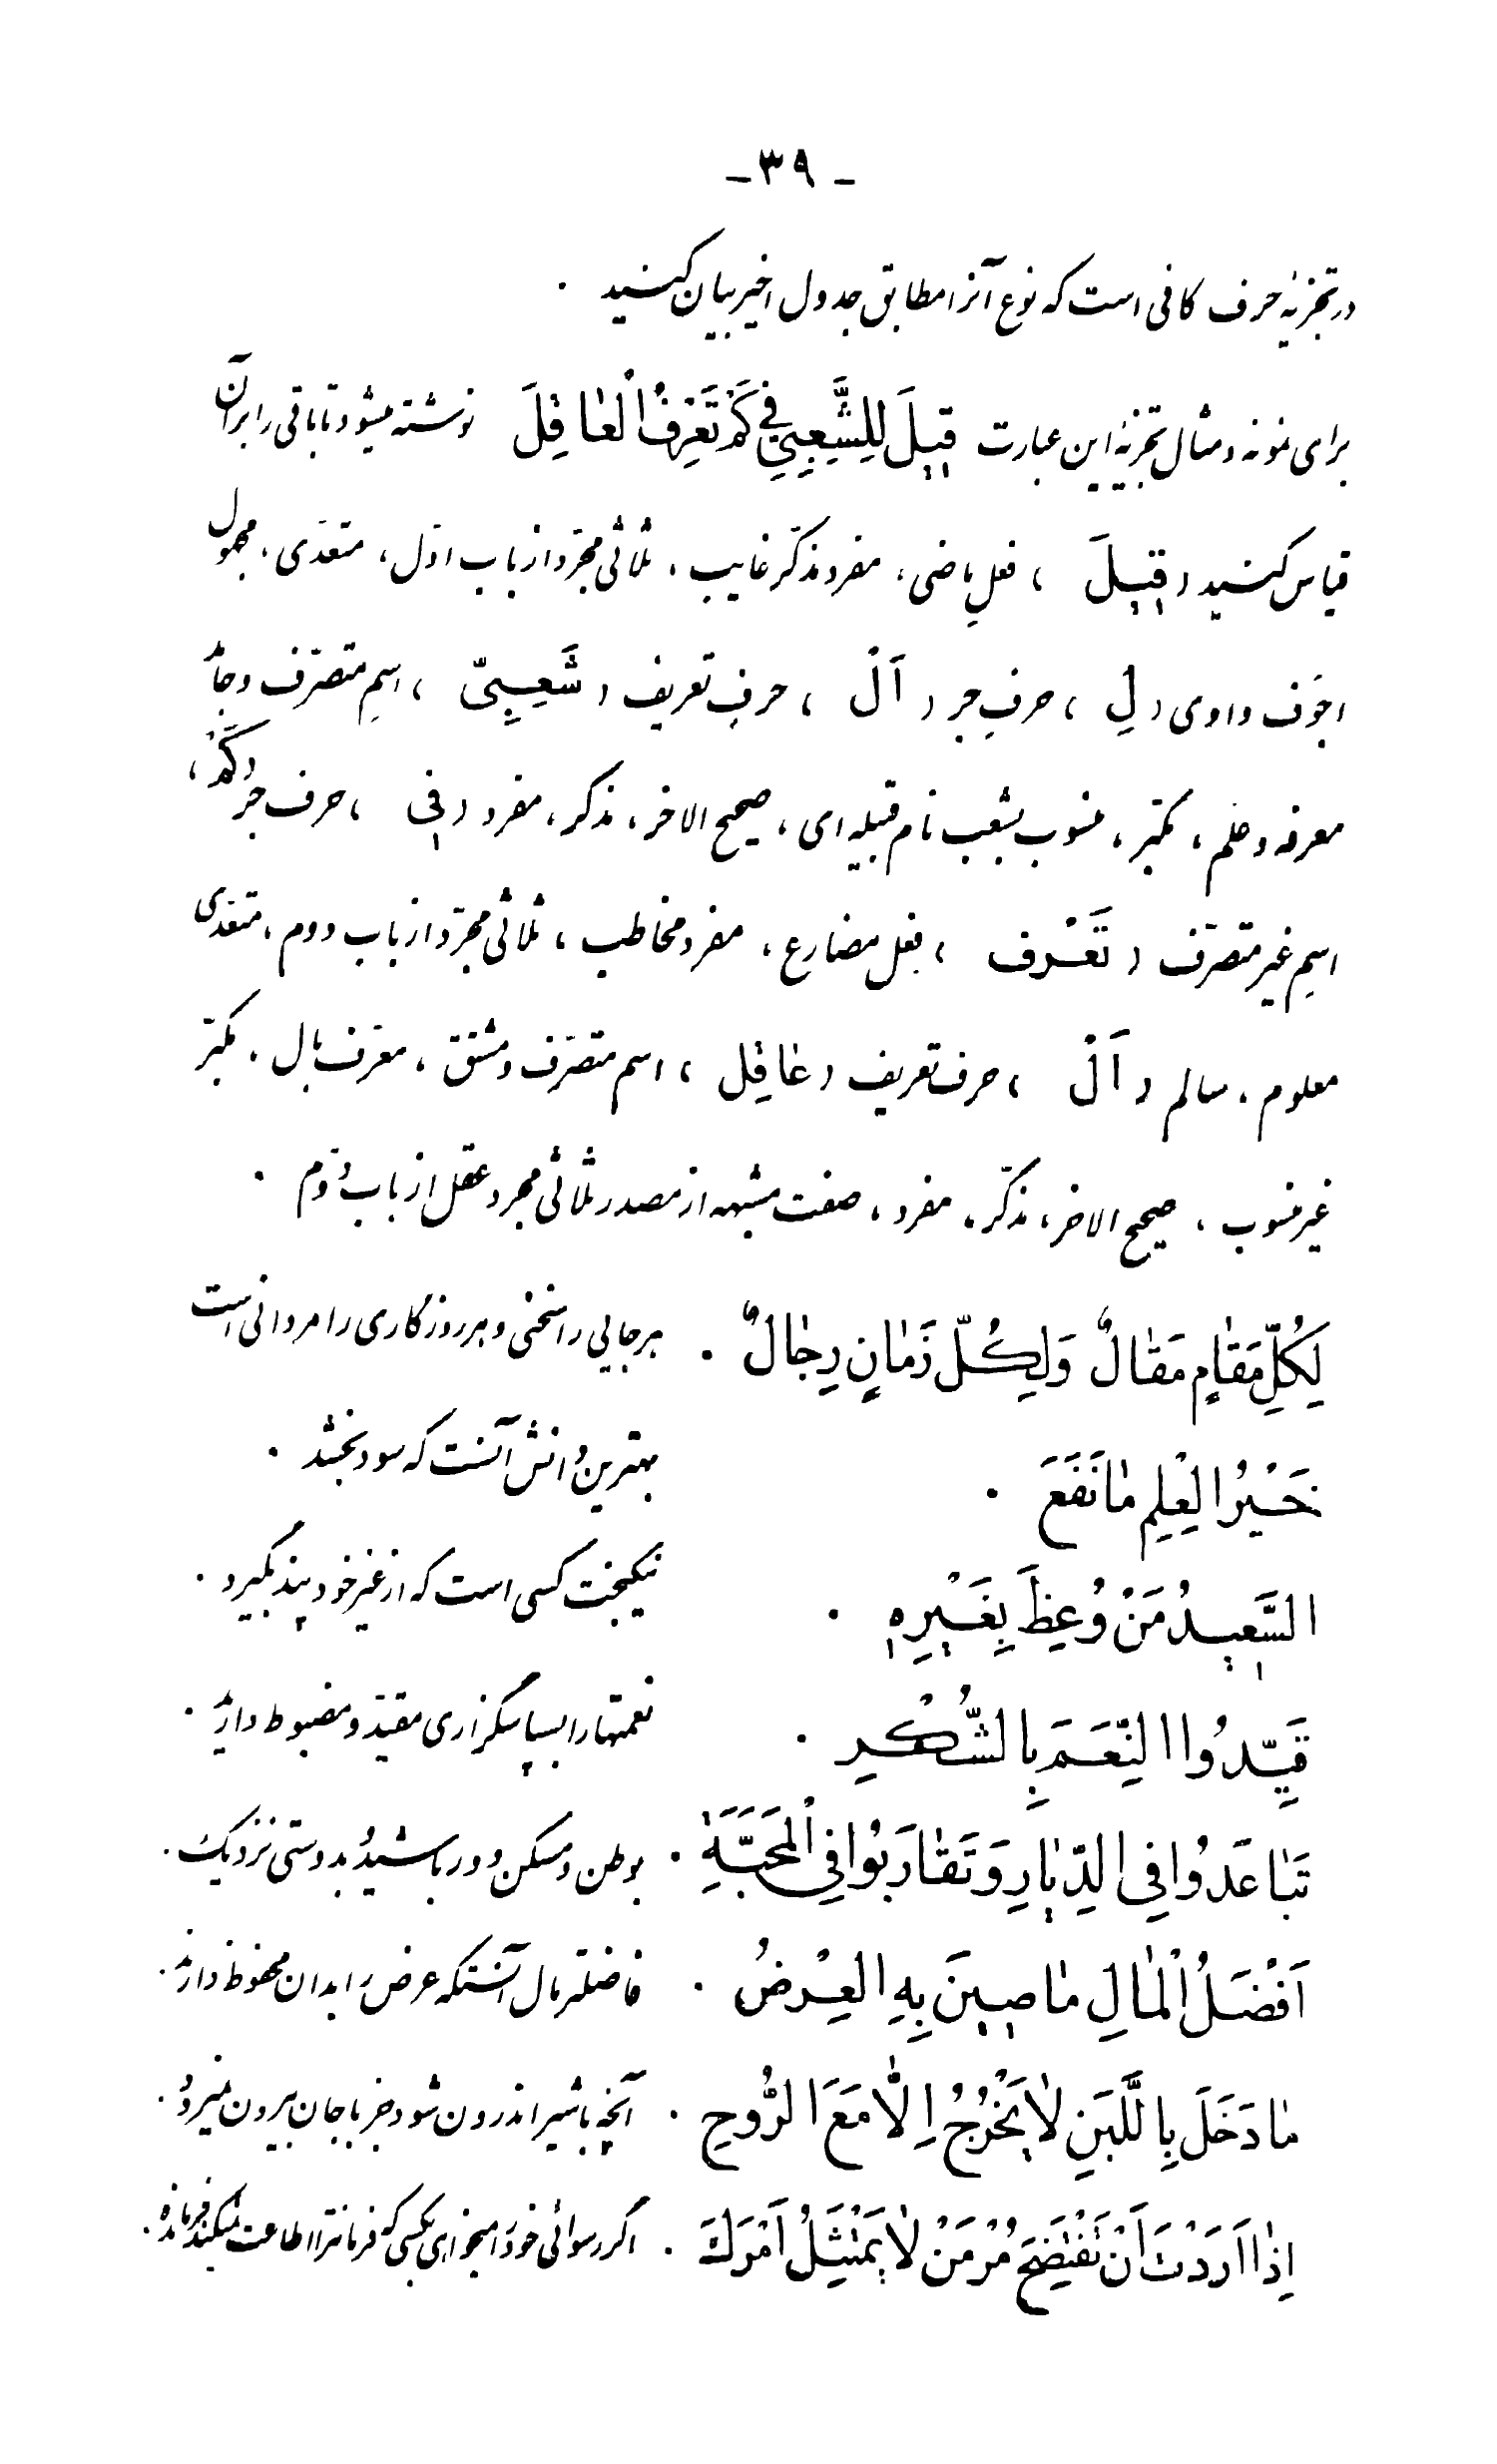 - ۳۹ -
در تجزیهٔ حرف کافی است که نوع آنرا مطابق جدول اخیر بیان کنید .
برای نمونه و مثال تجزیهٔ این عبارت قیلَ لِلشَّعِبِیِّ فی کَمْ تَعْرِفُ الْعاقِلَ نوشته میشود تا باقی را بر آن
قیاس کنید ( قیلَ ، فعلِ ماضی ، مفرد مذکّر غایب ، ثلاثی مجرّد از باب اوّل ، متعدّی ، مجهول
اجوَف واوی ( لِ ، حرفِ جر ( اَلْ ، حرفِ تعریف ( شَعِبِیّ ، اسمِ متصرّف و جامد
معرفه و علَم ، مکبّر ، منسوب بشعب نام قبیله ای ، صحیح الاخر ، مذکر ، مفرد ( فی ، حرف جر ( کَمْ ،
اسمِ غیر متصرّف ( تَعْرف ، فعل مضارع ، مفرد مخاطب ، ثلاثی مجرّد از باب دوم ، متعدی
معلوم ، سالم ( اَلْ ، حرف تعریف ( عاقِل ، اسم متصرّف و مشتق ، معرّف بال ، مکبّر
غیر منسوب ، صحیح الاخر ، مذکّر ، مفرد ، صفت مشبهه از مصدر ثلاثی مجرد عقل از باب دوّم .
لِکُلِّ مَقامٍ مَقالٌ وَلِکُلِّ زَمانٍ رِجالٌ . هر جایی را سخنی و هر روزگاری را مردانی است
خَیْرُ الْعِلمِ مانَفَعَ . بهترین دانش آنست که سود بخشد .
السَّعیدُ مَنْ وُعِظَ بِغَیْرِهِ . نیکبخت کسی است که از غیر خود پند بگیرد .
قَیِّدُوا النِّعَمَ بِالشُّکْرِ . نعمتها را بسپاسگزاری مقیّد و مضبوط دارید .
تَباعَدُوا فِی الدِّیارِ وَتَقارَبُوا فِی الْمَحَبَّةِ . بوطن و مسکن دور باشید و بدوستی نزدیک .
اَفْضَلُ الْمالِ ماصینَ بِهِ العِرْضُ . فاضلتر مال آنستکه عرض را بدان محفوظ دارند .
مادَخَلَ بِاللَّبَنِ لایَخْرُجُ اِلّا مَعَ الرُّوحِ . آنچه با شیر اندرون شود جز با جان بیرون نمیرود .
اِذا اَرَدْتَ اَنْ تَفْتَضِحَ مُرْمَنْ لایَمْتَثِلُ اَمْرَکَ . اگر رسوائی خود را میخواهی بکسی که فرمانترا اطاعت نمیکند فرمان ده .